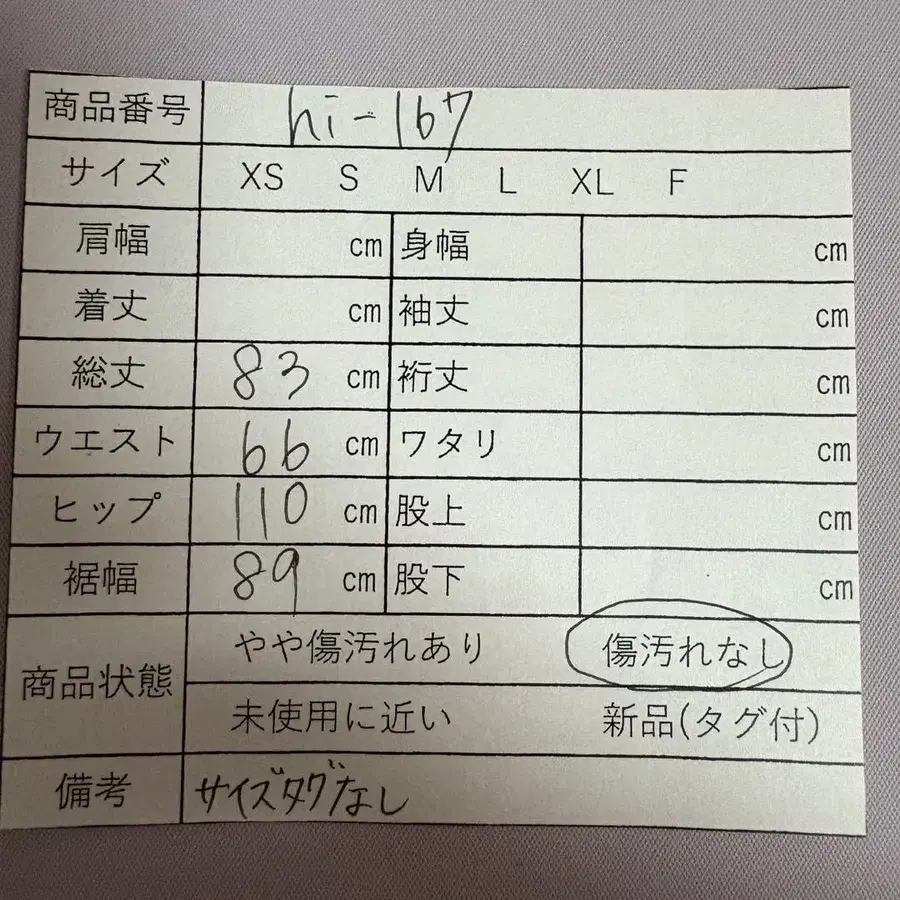 商品番号 hi-167
サイズ XS S M L XL F
肩幅 cm 身幅 cm
着丈 cm 袖丈 cm
総丈 83 cm 裄丈 cm
ウエスト 66 cm ワタリ cm
ヒップ 110 cm 股上 cm
裾幅 89 cm 股下 cm
商品状態 やや傷汚れあり 傷汚れなし
未使用に近い 新品(タグ付)
備考 サイズタグなし